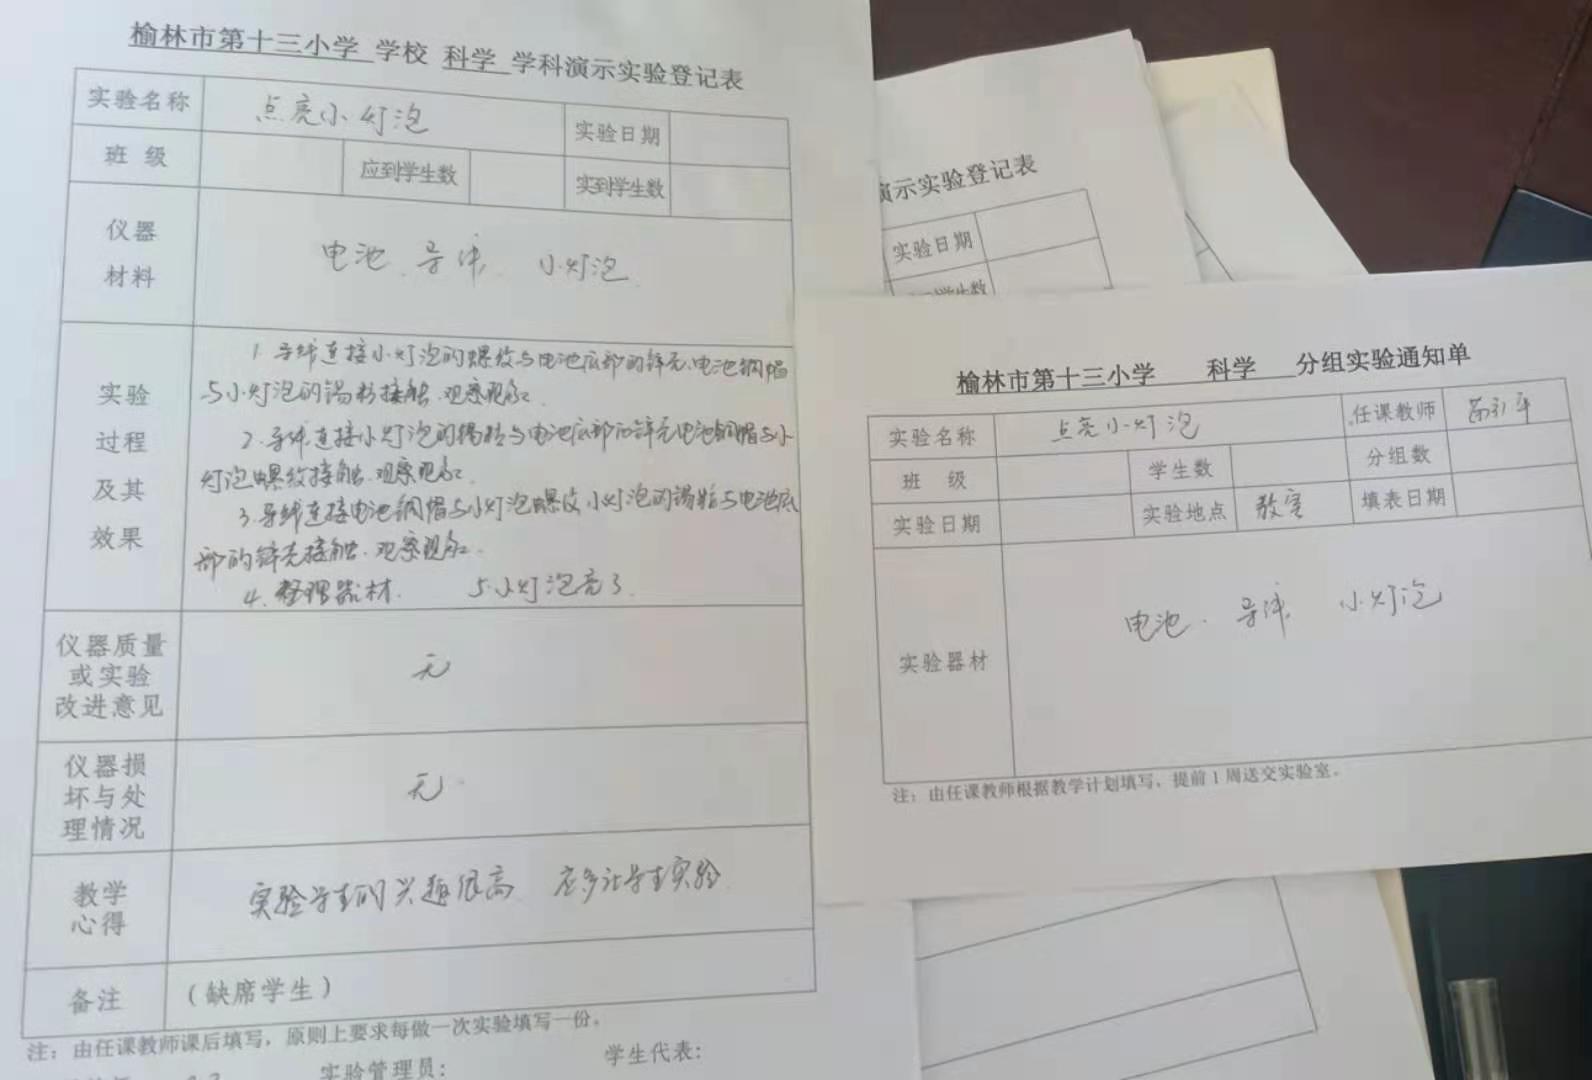 榆林市第十三小学 学校 科学 学科演示实验登记表
实验名称 点亮小灯泡 实验日期
班 级 应到学生数 实到学生数
仪器
材料
电池、导体、小灯泡
实验
过程
及其
效果
1. 导线连接小灯泡的螺纹与电池底部的锌壳、电池铜帽
与小灯泡的锡粒接触、观察现象.
2. 导线连接小灯泡的锡粒与电池底部的锌壳电池铜帽与小
灯泡螺纹接触、观察现象.
3. 导线连接电池铜帽与小灯泡螺纹、小灯泡的锡粒与电池底
部的锌壳接触、观察现象.
4. 整理器材. 5.小灯泡亮了.
仪器质量
或实验
改进意见
无
仪器损
坏与处
理情况
无
教学
心得
实验学生的兴趣很高 应多让学生实验
备注 (缺席学生)
注：由任课教师课后填写，原则上要求每做一次实验填写一份。
实验管理员: 学生代表:
演示实验登记表
实验日期
学生数
榆林市第十三小学 科学 分组实验通知单
实验名称 点亮小灯泡 任课教师
班 级 学生数 分组数
实验日期 实验地点 教室 填表日期
实验器材 电池、导体、小灯泡
注：由任课教师根据教学计划填写，提前1周送交实验室。